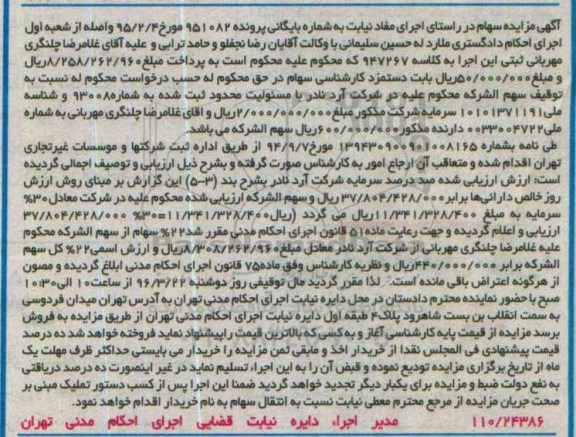 آگهی مزایده سهام در راستای اجرای مفاد نیابت به شماره بایگانی پرونده ۹۵۱۰۸۲ مورخ ۹۵/۲/۴ واصله از شعبه اول
اجرای احکام دادگستری ملارد له حسین سلیمانی با وکالت آقایان رضا نجفلو و حامد ترابی و علیه آقای غلامرضا چلنگری
مهربانی ثبتی این اجرا به کلاسه ۹۴۷۲۶۷ که محکوم علیه محکوم است به پرداخت مبلغ ۸/۲۵۸/۲۶۲/۹۶۰ریال
و مبلغ ۵۰/۰۰۰/۰۰۰ریال بابت دستمزد کارشناسی سهام در حق محکوم له حسب درخواست محکوم له نسبت به
توقیف سهم الشرکه محکوم علیه در شرکت آرد نادر با مسئولیت محدود ثبت شده به شماره ۹۳۰۰۸ و شناسه
ملی ۱۰۱۰۱۳۷۱۱۹۱ سرمایه شرکت مذکور مبلغ ۲/۰۰۰/۰۰۰/۰۰۰ریال و اقای غلامرضا چلنگری مهربانی به شماره
ملی ۰۰۳۳۰۰۴۷۲۲ دارنده مذکور ۶۰۰/۰۰۰/۰۰۰ریال سهم الشرکه می باشد.
طی نامه بشماره ۱۳۹۴۳۰۹۰۰۹۰۱۰۰۸۱۶۵ مورخ ۹۴/۹/۷ از طریق اداره ثبت شرکتها و موسسات غیرتجاری
تهران اقدام شده و متعاقب آن ارجاع امور به کارشناس صورت گرفته و بشرح ذیل ارزیابی و توصیف اجمالی گردیده
است: ارزش ارزیابی شده صد درصد سرمایه شرکت آرد نادر بشرح بند (۳-۵) این گزارش بر مبنای روش ارزش
روز خالص دارائی‌ها برابر ۳۷/۸۰۴/۴۲۸/۰۰۰ ریال و سهم الشرکه ارزیابی شده محکوم علیه در شرکت معادل ۳۰%
سرمایه به مبلغ ۱۱/۳۴۱/۳۲۸/۴۰۰ریال می گردد (ریال ۱۱/۳۴۱/۳۲۸/۴۰۰=۳۰%× ۳۷/۸۰۴/۴۲۸/۰۰۰
ارزیابی و اعلام گردیده و جهت رعایت ماده ۵۱ قانون اجرای احکام مدنی مقرر شد ۲۲% سهام از سهم الشرکه محکوم
علیه غلامرضا چلنگری مهربانی از شرکت آرد نادر معادل مبلغ ۸/۳۰۸/۲۶۲/۹۶۰ریال و ارزش اسمی ۲۲% کل سهم
الشرکه برابر ۴۴۰/۰۰۰/۰۰۰ریال و نظریه کارشناس وفق ماده ۷۵ قانون اجرای احکام مدنی ابلاغ گردیده و مصون
از هرگونه اعتراض باقی مانده است. لذا مقرر گردید مال توقیفی روز دوشنبه ۹۶/۳/۲۲ از ساعت ۱۰ الی ۱۰:۳۰
صبح با حضور نماینده محترم دادستان در محل دایره نیابت اجرای احکام مدنی تهران به آدرس تهران میدان فردوسی
به سمت انقلاب بن بست شاهرود پلاک ۴ طبقه اول دایره نیابت اجرای احکام مدنی تهران از طریق مزایده به فروش
برسد مزایده از قیمت پایه کارشناسی آغاز و به کسی که بالاترین قیمت را پیشنهاد نماید فروخته خواهد شد ده درصد
قیمت پیشنهادی فی المجلس نقدا از خریدار اخذ و مابقی ثمن مزایده را خریدار می بایستی حداکثر ظرف مهلت یک
ماه از تاریخ برگزاری مزایده تودیع نموده و قبض آن را به این اجراء تسلیم نماید در غیر اینصورت ده درصد دریافتی
به نفع دولت ضبط و مزایده برای یکبار دیگر تجدید خواهد گردید ضمنا این اجرا پس از کسب دستور تملیک مبنی بر
صحت جریان مزایده از مرجع محترم معطی نیابت نسبت به انتقال سهام به نام خریدار اقدام خواهد نمود.
۱۱۰/۲۴۳۸۶ مدیر اجراء دایره نیابت قضایی اجرای احکام مدنی تهران